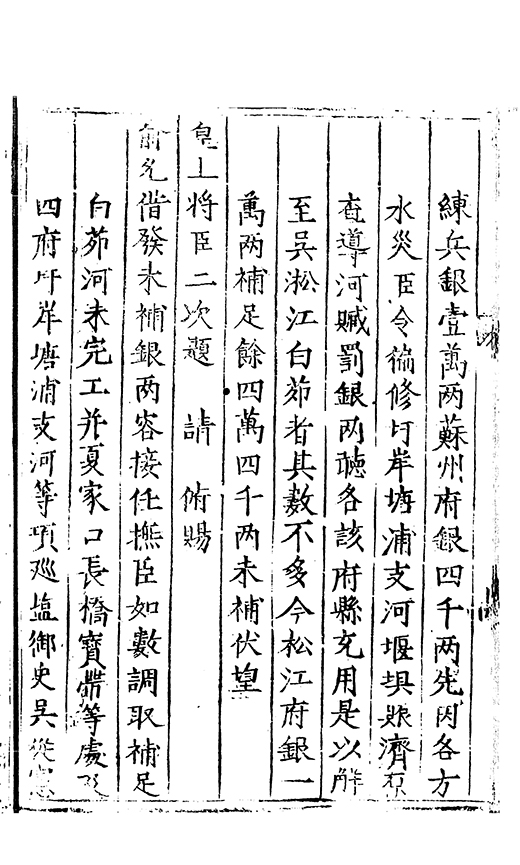 練兵銀壹萬两蘇州府銀四千两先因各方
水災臣令徧修圩岸塘浦支河堰垻賑濟
查導河贓罰銀两聽各該府縣充用是以解
至吳淞江白茆者其数不多今松江府銀一
萬两補足餘四萬四千两未補伏望
皇上将臣二次題 請 俯賜
俞允借發未補銀两容接任撫臣如數調取補足
白茆河未完工并夏家口長橋寶帶等處及
四府圩岸塘浦支河等項巡塩御史吳從憲